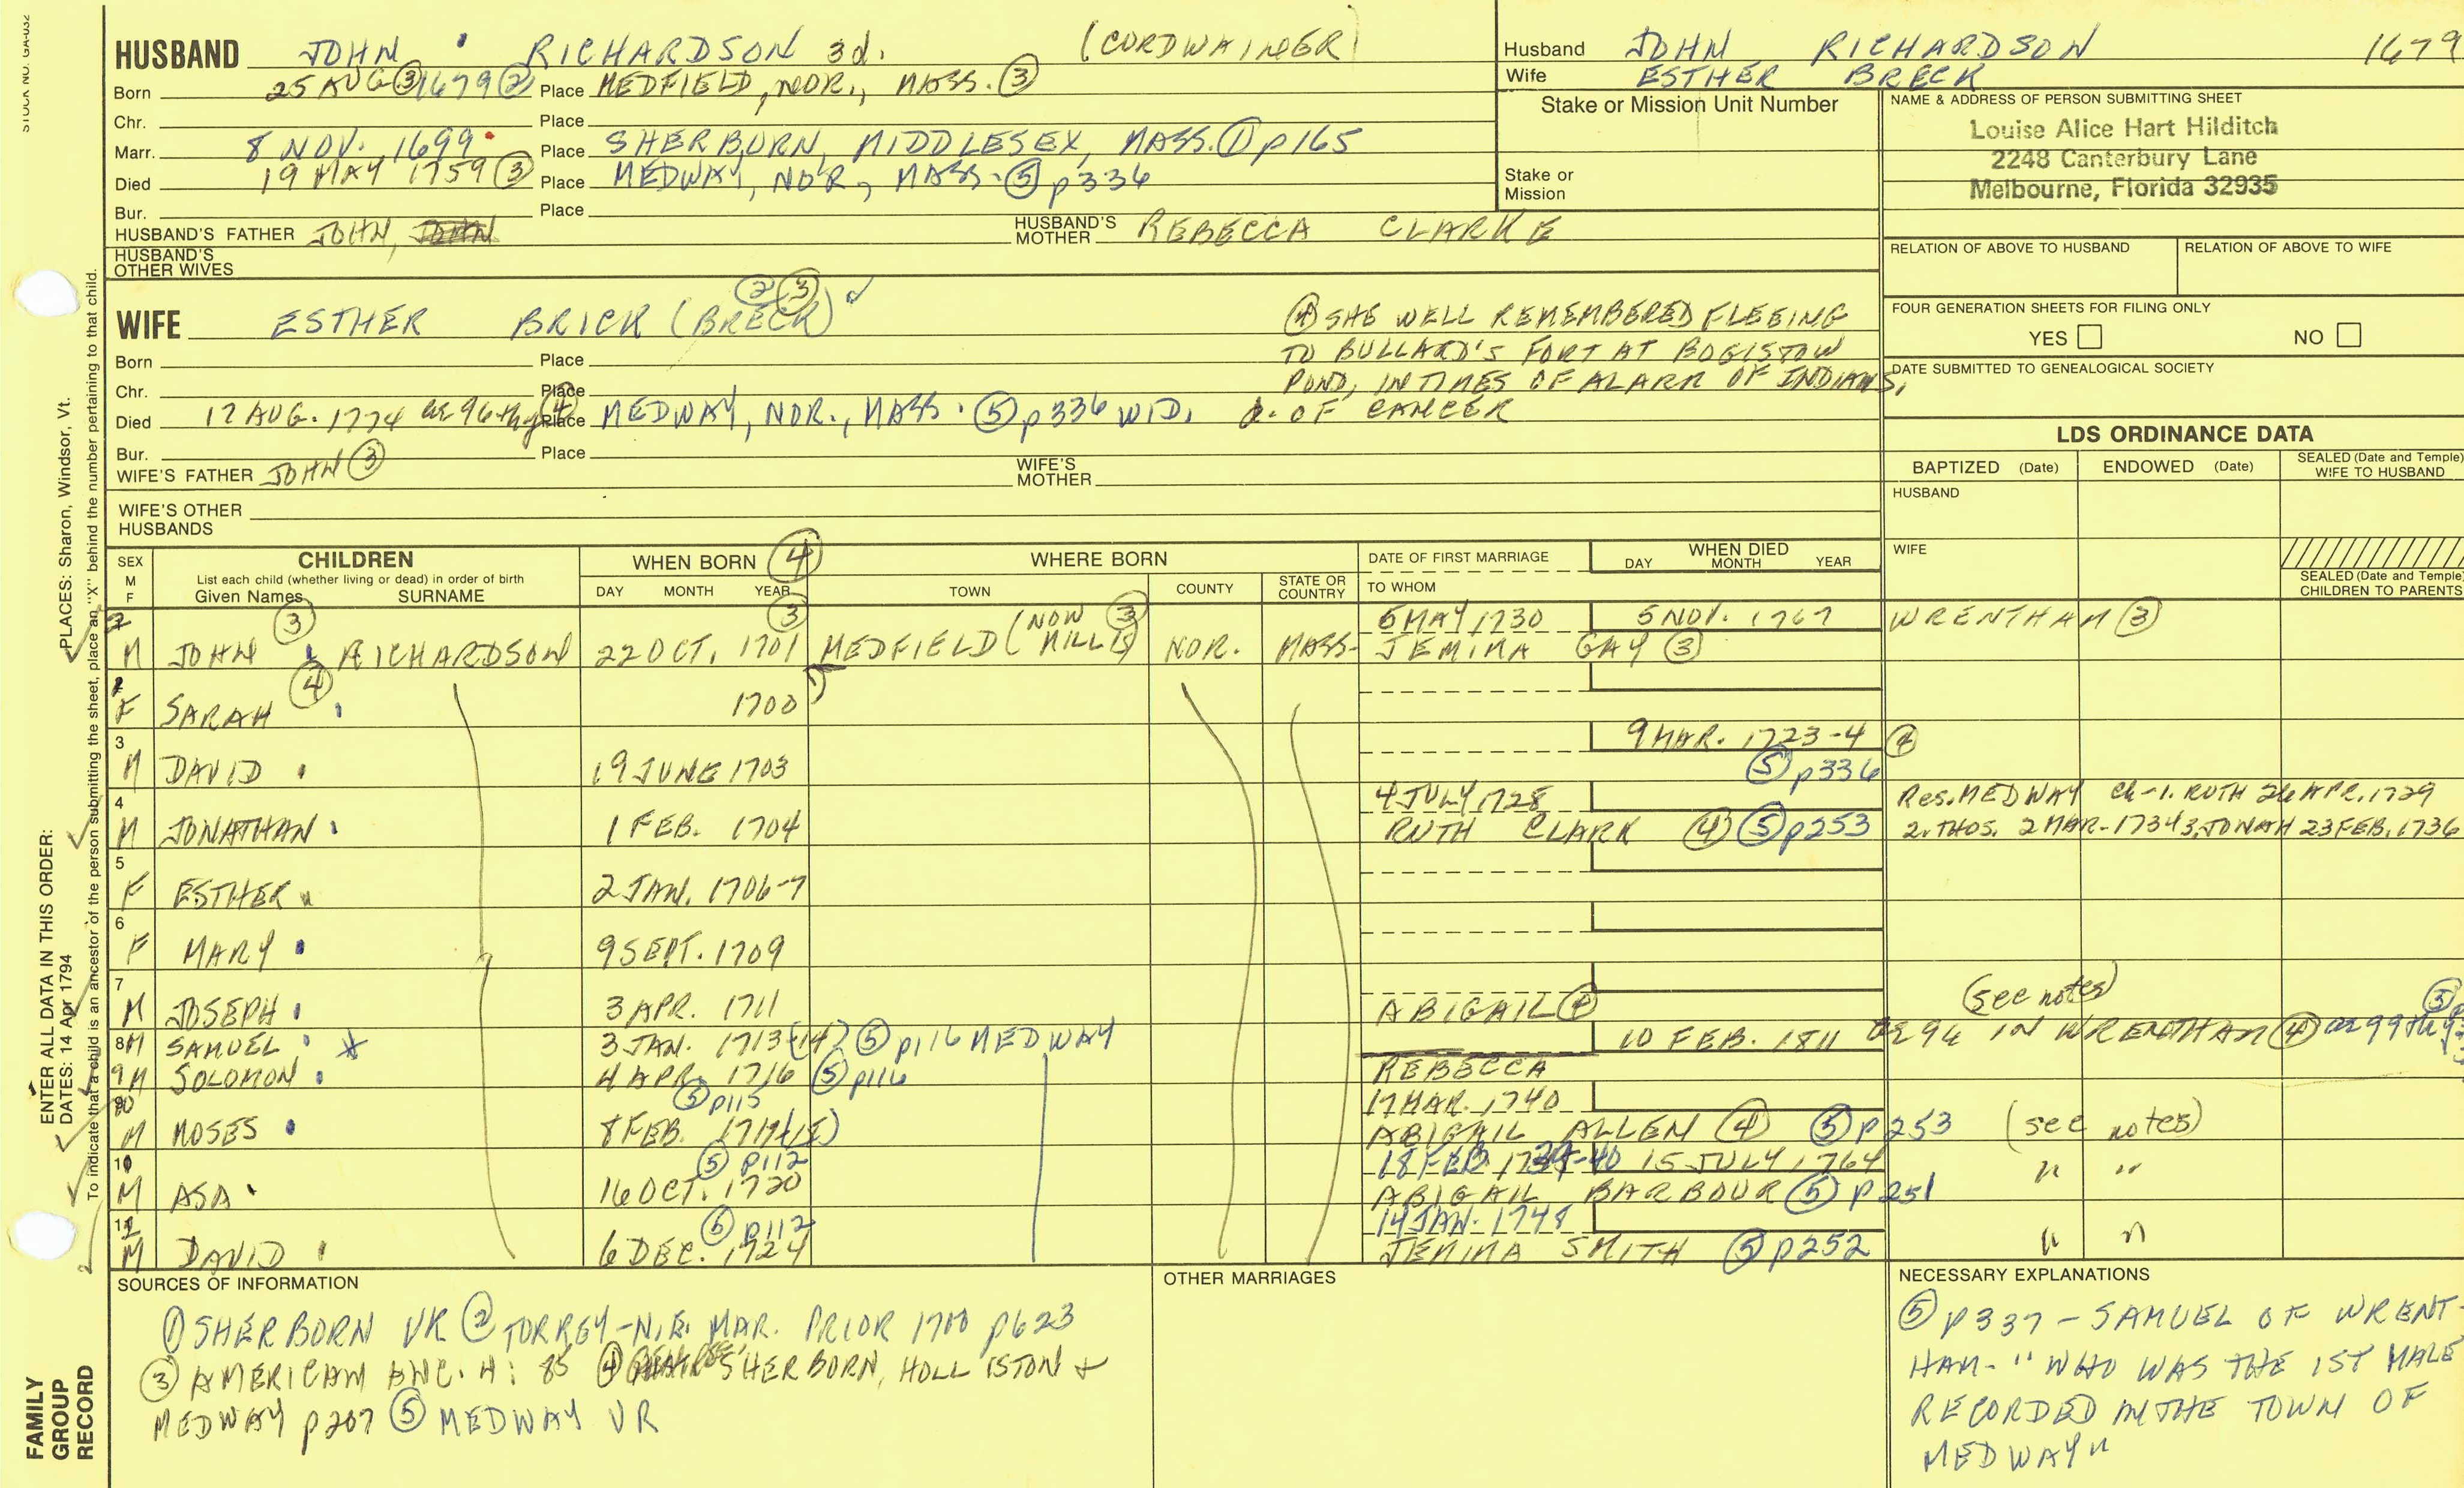 STOCK NO. GA-032
HUSBAND JOHN RICHARDSON 3d. (CORDWAINER)
Born 25 AUG ③ 1679 ② Place MEDFIELD, NOR., MASS. ③
Chr. Place
Marr. 8 NOV. 1699 Place SHERBURN, MIDDLESEX, MASS. ① p165
Died 19 MAY 1759 ③ Place MEDWAY, NOR., MASS. ⑤ p336
Bur. Place
HUSBAND'S FATHER JOHN, HUSBAND'S MOTHER REBECCA CLARKE
HUSBAND'S OTHER WIVES
Husband JOHN RICHARDSON 1679
Wife ESTHER BRECK
Stake or Mission Unit Number
Stake or Mission
NAME & ADDRESS OF PERSON SUBMITTING SHEET
Louise Alice Hart Hilditch
2248 Canterbury Lane
Melbourne, Florida 32935
RELATION OF ABOVE TO HUSBAND RELATION OF ABOVE TO WIFE
FOUR GENERATION SHEETS FOR FILING ONLY
YES NO
DATE SUBMITTED TO GENEALOGICAL SOCIETY
WIFE ESTHER BRICK (BRECK) ② ③
④ SHE WELL REMEMBERED FLEEING
TO BULLARD'S FORT AT BOGISTOW
POND, IN TIMES OF ALARM OF INDIANS,
Born Place
Chr. Place
Died 17 AUG. 1774 ae 96thy ④ Place MEDWAY, NOR., MASS. ⑤ p336 WID. d. OF CANCER
Bur. Place
WIFE'S FATHER JOHN ③ WIFE'S MOTHER
WIFE'S OTHER HUSBANDS
LDS ORDINANCE DATA
BAPTIZED (Date) ENDOWED (Date) SEALED (Date and Temple) WIFE TO HUSBAND
HUSBAND
WIFE
SEALED (Date and Temple) CHILDREN TO PARENTS
SEX M F
CHILDREN
List each child (whether living or dead) in order of birth
Given Names SURNAME
WHEN BORN ④
DAY MONTH YEAR
WHERE BORN
TOWN COUNTY STATE OR COUNTRY
DATE OF FIRST MARRIAGE
TO WHOM
WHEN DIED
DAY MONTH YEAR
2 M JOHN ③ RICHARDSON 22 OCT. 1701 ③ MEDFIELD (NOW MILLIS) ③ NOR. MASS. 5 MAY 1730 5 NOV. 1767 WRENTHAM ③
JEMIMA GAY ③
1 F SARAH ④ 1700
3 M DAVID 19 JUNE 1703 9 MAR. 1723-4 ④
⑤ p336
4 M JONATHAN 1 FEB. 1704 4 JULY 1728 Res. MEDWAY Ch-1. RUTH 26 APR. 1729
RUTH CLARK ④ ⑤ p253 2. THOS. 2 MAR. 1734 3. JONAH 23 FEB. 1736
5 F ESTHER 2 JAN. 1706-7
6 F MARY 9 SEPT. 1709
7 M JOSEPH 3 APR. 1711 ABIGAIL ④ (see notes)
8 M SAMUEL 3 JAN. 1713 (14) ⑤ p116 MEDWAY 10 FEB. 1811 ae 94 IN WRENTHAM ④ ae 99thy
9 M SOLOMON 4 APR. 1716 ⑤ p116 REBECCA
10 M MOSES 8 FEB. ⑤ p115 17 MAR. 1740
ABIGAIL ALLEN ④ ⑤ p253 (see notes)
11 M ASA 16 OCT. 1720 ⑤ p112 18 FEB. 1739-40 15 JULY 1764 " "
ABIGAIL BARBOUR ⑤ p251
12 M DAVID 6 DEC. 1724 ⑤ p112 14 JAN. 1748
JEMIMA SMITH ⑤ p252 " "
SOURCES OF INFORMATION
① SHERBORN VR ② TORREY-N.E. MAR. PRIOR 1700 p623
③ AMERICAN ANC. 4: 85 ④ SHERBORN, HOLLISTON &
MEDWAY p207 ⑤ MEDWAY VR
OTHER MARRIAGES
NECESSARY EXPLANATIONS
⑤ p337 - SAMUEL OF WRENT-
HAM- "WHO WAS THE 1ST MALE
RECORDED IN THE TOWN OF
MEDWAY"
FAMILY GROUP RECORD
ENTER ALL DATA IN THIS ORDER:
DATES: 14 Apr 1794
PLACES: Sharon, Windsor, Vt.
To indicate that a child is an ancestor of the person submitting the sheet, place an "X" behind the number pertaining to that child.